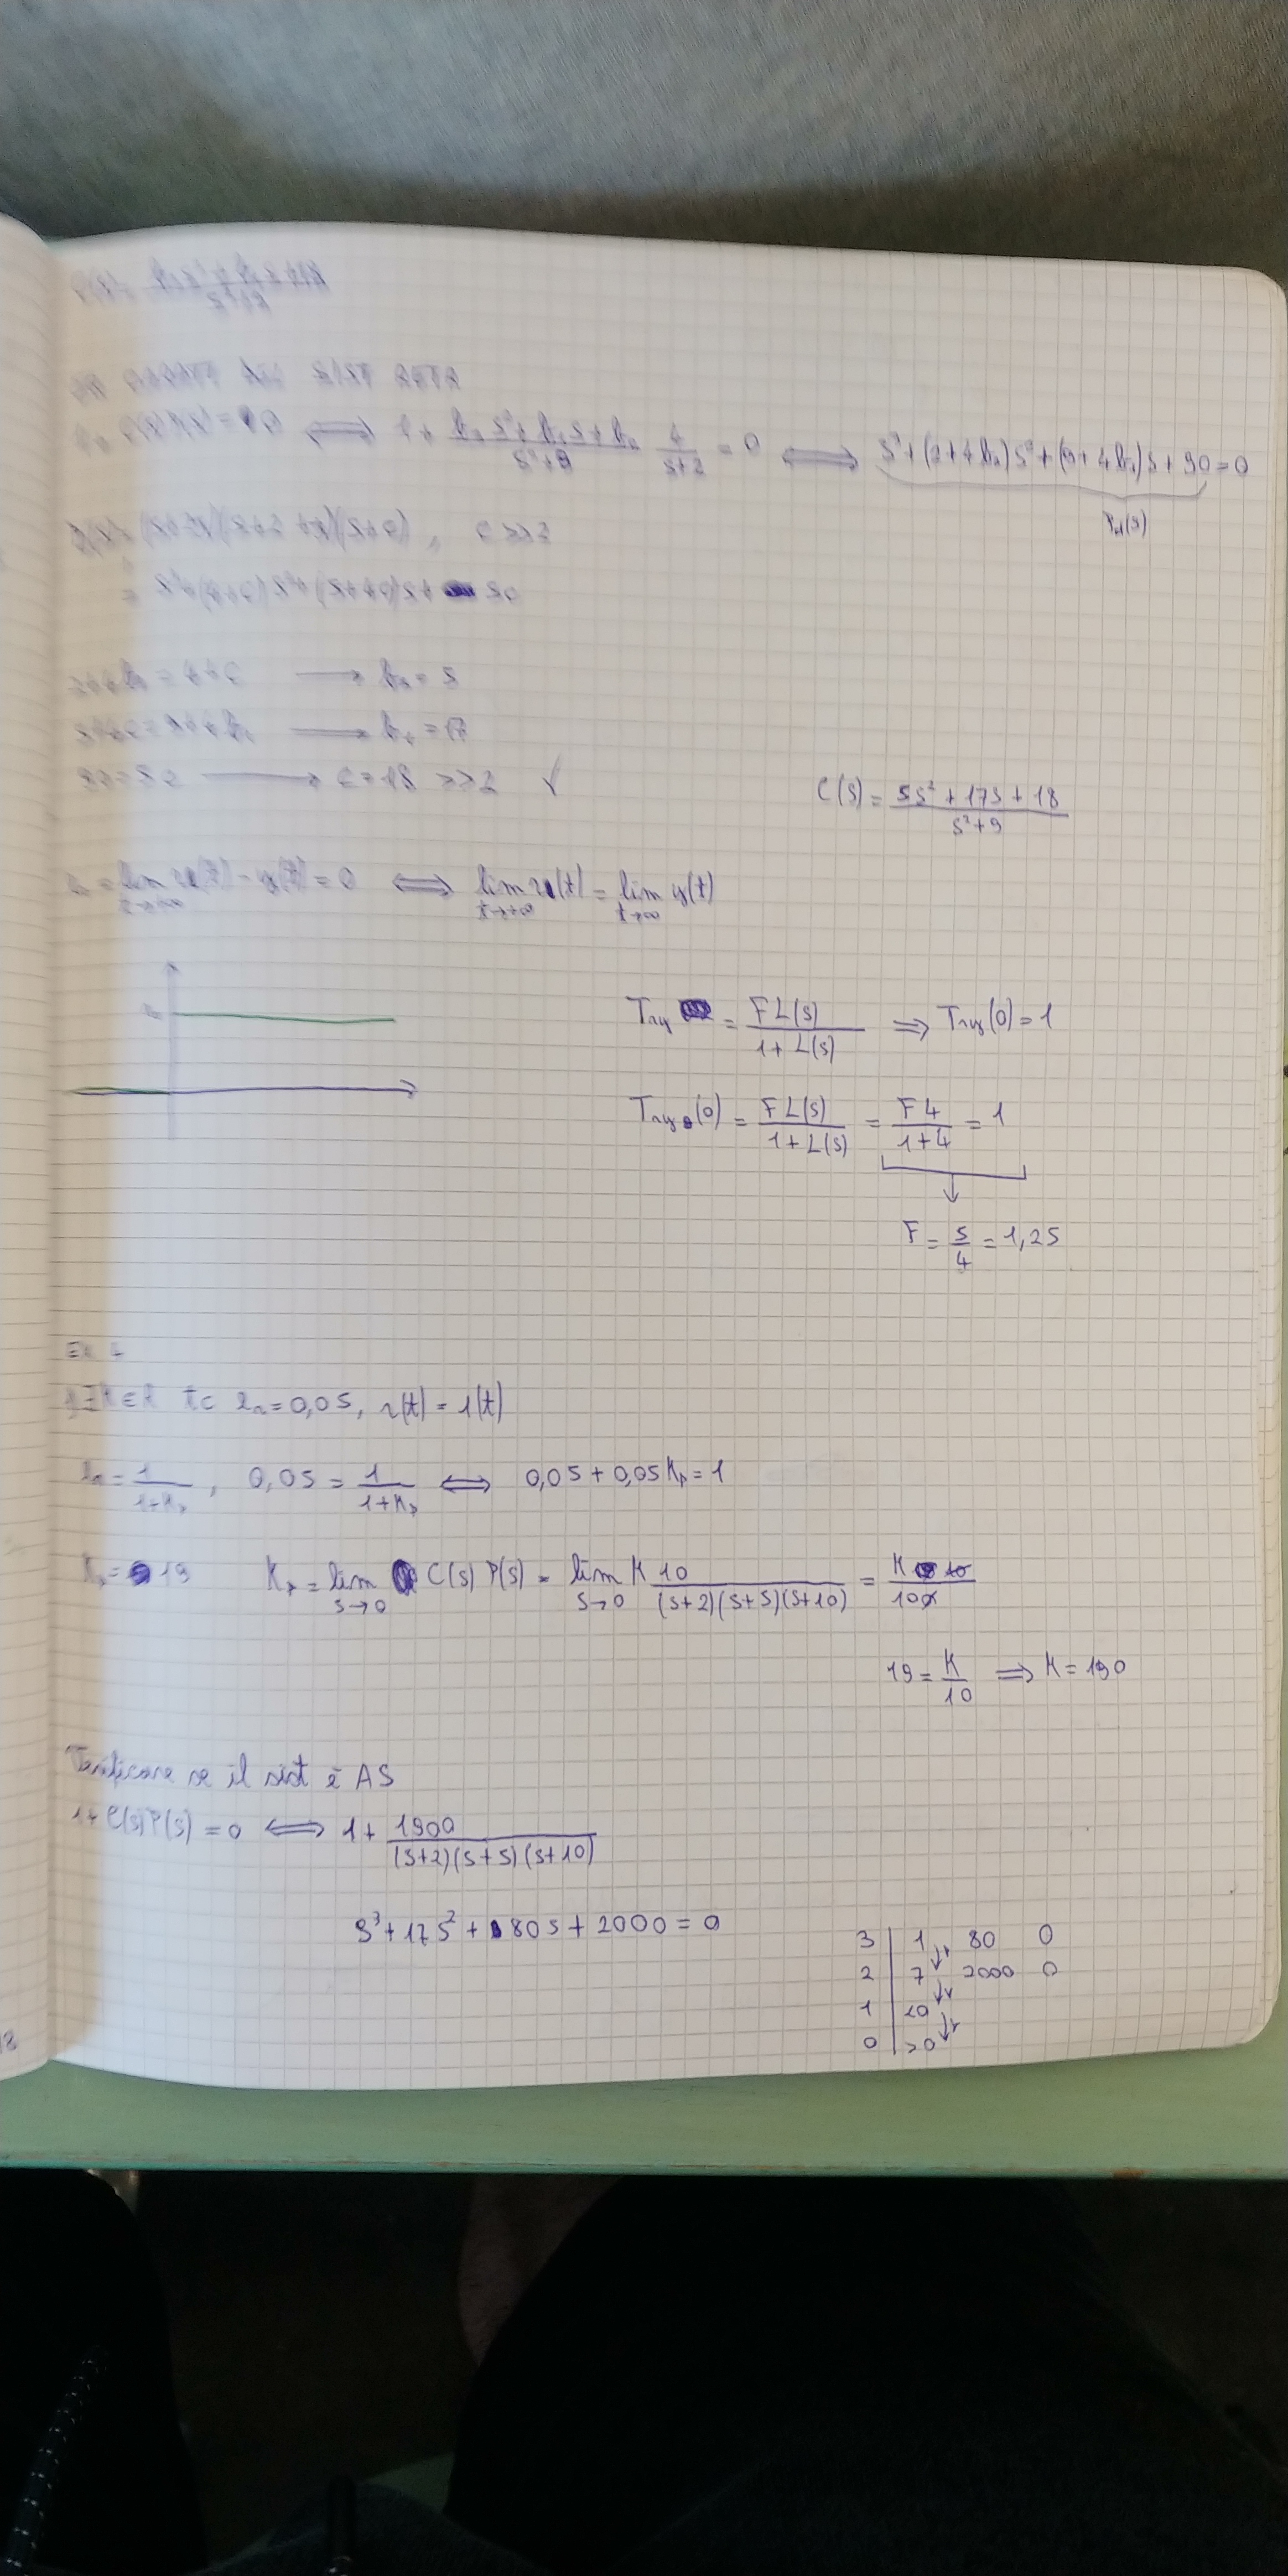 ⟺ 1 + (b₂s²+b₁s+b₀)/(s²+9) 4/(s+2) = 0 ⟺ s³+(2+4b₂)s²+(9+4b₁)s+90=0
Pd(s)
= s³+(4+c)s²+(5+4c)s+ 5c
⟶ b₂ = 5
5+4c=9+4b₁ ⟶ b₁ = 17
90=5c ⟶ c=18 >>2 ✓
C(s) = (5s²+17s+18)/(s²+9)
lim t→+∞ r(t) - y(t) = 0 ⟺ lim t→+∞ r(t) = lim t→∞ y(t)
Try = FL(s)/(1+L(s)) ⟹ Try(0)=1
Try(0) = FL(s)/(1+L(s)) = F4/(1+4) = 1
↓
F = 5/4 = 1,25
Ex 4
tc er=0,05, r(t) = 1(t)
er = 1/(1+Kp), 0,05 = 1/(1+Kp) ⟺ 0,05+0,05Kp=1
Kp = 19 Kp = lim s→0 C(s)P(s) = lim s→0 K 10/((s+2)(s+5)(s+10)) = K 10/100
19 = K/10 ⟹ K=190
Verificare se il sist è AS
1+C(s)P(s) = 0 ⟺ 1+ 1900/((s+2)(s+5)(s+10))
s³+17s²+80s+2000=0
3 | 1 80 0
2 | 7 2000 0
1 | <0
0 | >0